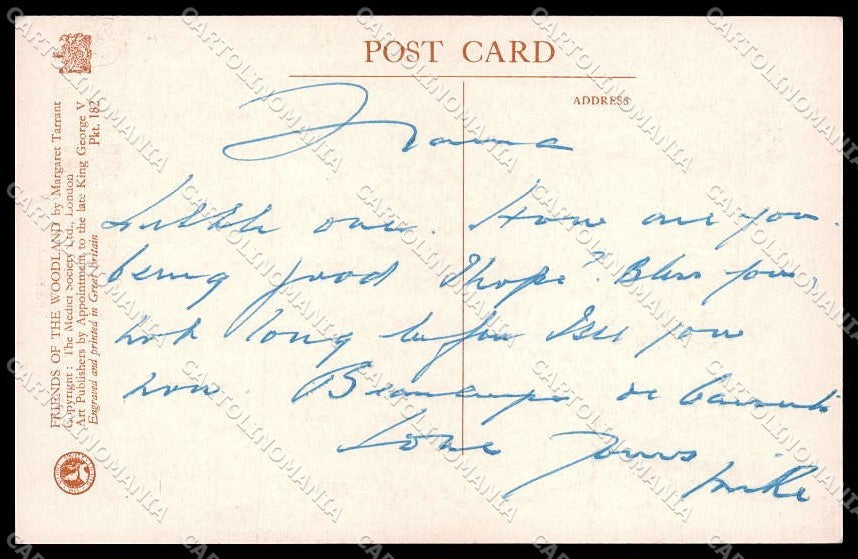 POST CARD
ADDRESS
FRIENDS OF THE WOODLAND by Margaret Tarrant
Copyright: The Medici Society Ltd., London
Art Publishers by Appointment to the late King George V
Engraved and printed in Great Britain
Pkt. 182
Little one. How are you
being good I hope? Bless you,
not long before I see you
now. Beaucoups de
Love Yours
Mike
CARTOLINOMANIA